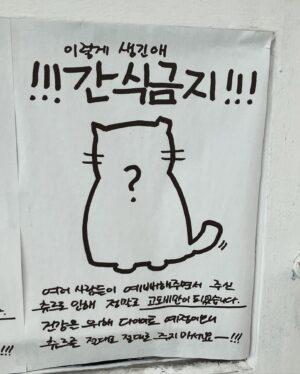 이렇게 생긴애
!!!간식금지!!!
?
여러 사람들이 예뻐해주면서 주신
츄르로 인해 정말로 고도비만이 되었습니다.
건강을 위해 다이어트 예정이오니
츄르를 절대로 절대로 주지 마세요ㅡ!!!